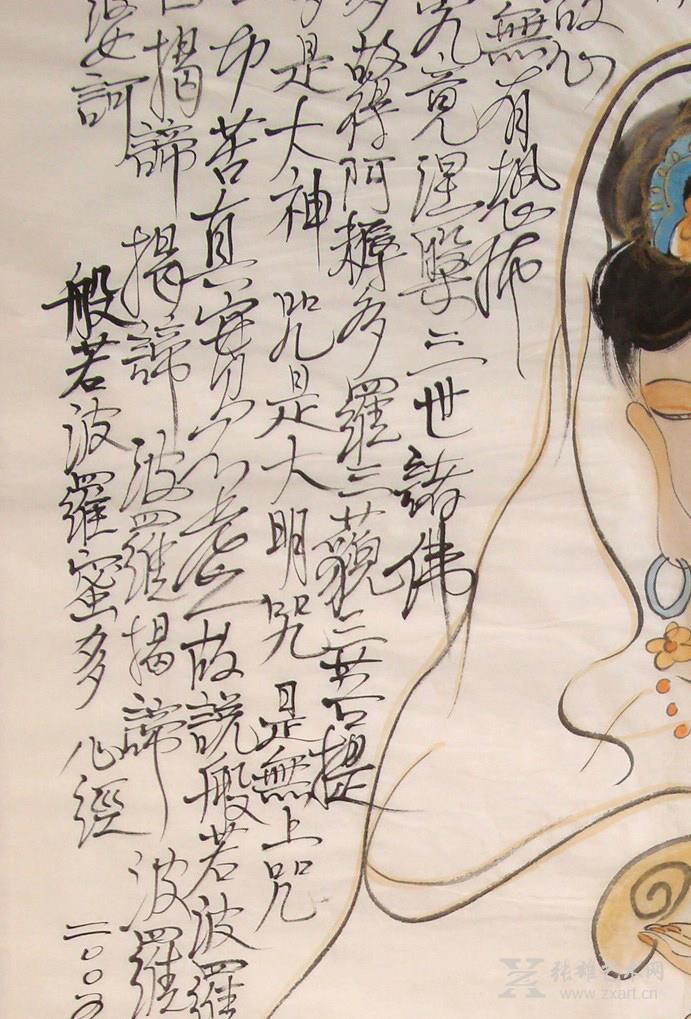 故心
無有恐怖
究竟涅槃三世諸佛
多故得阿耨多羅三藐三菩提
是大神咒是大明咒是無上咒
苦真實不虛故說般若波羅
曰揭諦揭諦波羅揭諦波羅
婆訶
般若波羅蜜多心經
二〇〇
张雄艺术网
www.zxart.cn